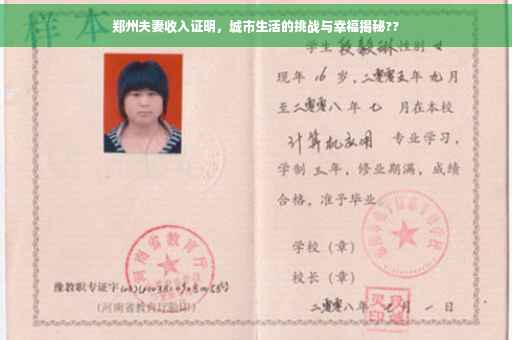 郑州夫妻收入证明，城市生活的挑战与幸福揭秘??
样本
学生 段毅琳 性别 女
现年 16 岁，二零零五年 九 月
至二零零八 年 七 月在本校
计算机应用 专业学习，
学制 三 年，修业期满，成绩
合格，准予毕业。
学校（章）
校长（章）
二零零八年 月 一 日
河南省教育厅
豫教职专证字
(河南省教育厅验印)